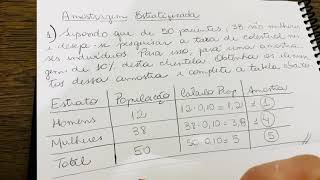 Amostragem Estratificada
1) Supondo que de 50 pacientes, 38 são mulheres
e deseja-se pesquisar a taxa de colesterol nes
ses indivíduos. Para isso, fará uma amostra
gem de 10% desta clientela. Obtenha os elemen
tos dessa amostra e complete a tabela abaixo
Estrato População Cálculo Prop Amostra
Homens 12 12·0,10=1,2 ± 1
Mulheres 38 38·0,10=3,8 ± 4
Total 50 50·0,10=5 5